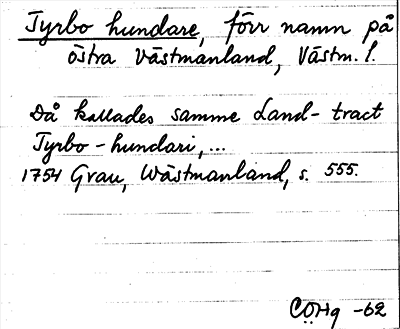 Tyrbo hundare, förr namn på
östra Västmanland, Västm. l.
Då kallades samme Land-tract
Tyrbo-hundari,...
1754 Grau, Wästmanland, s. 555.
CÖHg -62